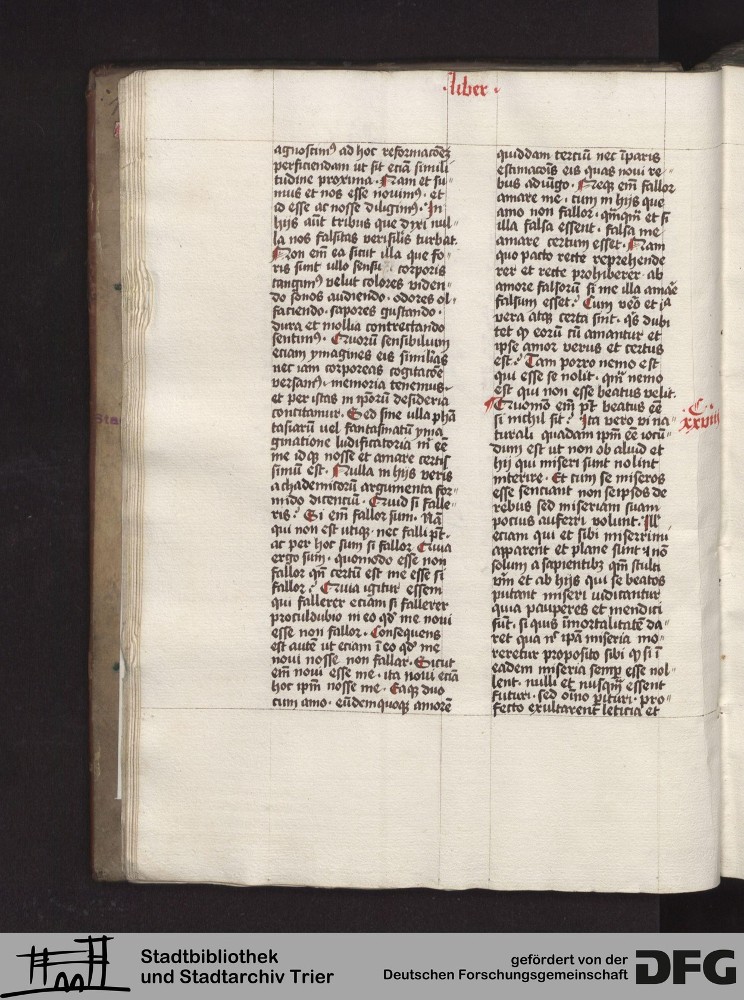 ·liber·
agnoscim⁹ ad hoc reformac̄oēz
perficiendam ut sit eciā simili
tudine proxima · Nam et su''
mus et nos esse novim⁹ · et
id esse ac nosse diligim⁹ · In
hijs aūt tribus que dixi nul''
la nos falsitas verisīlis turbat.
Non em̄ ea sicut illa que fo''
ris sunt ullo sensu corporis
tangim⁹ velut colores viden''
do sonos audiendo · odores ol''
faciendo · sapores gustando ·
dura et mollia contrectando
sentim⁹ · Quorū sensibilium
eciam ymagines eis similīas
nec iam corporeas cogitac̄oē
versam⁹ · memoria tenemus ·
et per istas in ip̄orū desideria
concitamur · Sed sine ulla phā
tasiarū vel fantasmatū yma
ginatione ludificatoria m̄ eē
me idq̨ nosse et amare certis
simū est · Nulla in hijs veris
achademicorū argumenta for''
mido dicenciū · Quid si falle''
ris? Si em̄ fallor sum · Nā
qui non est utiq̨ · nec falli pt̄ ·
ac per hoc sum si fallor Quia
ergo sum · quomodo esse non
fallor qn̄ certū est me esse si
fallor? Quia igitur essem
qui fallerer eciam si fallerer
proculdubio in eo qd̄ me novi
esse non fallor · Consequens
est autē ut eciam ī eo qd̄ me
novi nosse non fallar · Sicut
em̄ novi esse me · ita novi eciā
hoc ip̄m nosse me · Eaq̨ duo
cum amo · eūdemquoq̨ amorē
quiddam terciū nec īparis
estimac̄oīs eis quas novi re''
bus adiūgo · Neq̨ em̄ fallor
amare me · cum in hijs que
amo non fallor · qm̄qm̄ et si
illa falsa essent · falsa me
amare certum esset · Nam
quo pacto recte reprehende
rer et recte prohiberer · ab
amore falsorū si me illa amāe
falsum esset? Cum v̄eo et iā
vera atq̨ certa sint · q̄s dubi
tet q̨ eorū cū amantur et
ip̄se amor verus et certus
est? Tam porro nemo est
qui esse se nolit · qm̄ nemo
est qui non esse beatus velit.
Quom̄o em̄ pt̄ beatus eē
si nichil sit? Ita vero vi na''
turali quadam ip̄m eē iocū''
dum est ut non ob aliud et
hij qui miseri sunt nolint
interire · Et cum se miseros
esse senciant non seip̄sos de
rebus sed miseriam suam
pocius auferri volunt · Illī
eciam qui et sibi miserrimi
apparent et plane sunt ⁊ nō
solum a sapientibz qm̄ stulti
vm̄ et ab hijs qui se beatos
putant miseri iudicantur
quia pauperes et mendici
sūt · si quis īmortalitatē da''
ret qua nͨ ip̄ā miseria mo''
reretur proposito sibi q̨ si ī
eadem miseria semꝑ esse nol''
lent · nulli et nusqm̄ essent
futuri · sed oīno ꝑituri · pro''
fecto exultarent leticia et
·C·
xxviii
Stadtbibliothek
und Stadtarchiv Trier
gefördert von der
Deutschen Forschungsgemeinschaft
DFG